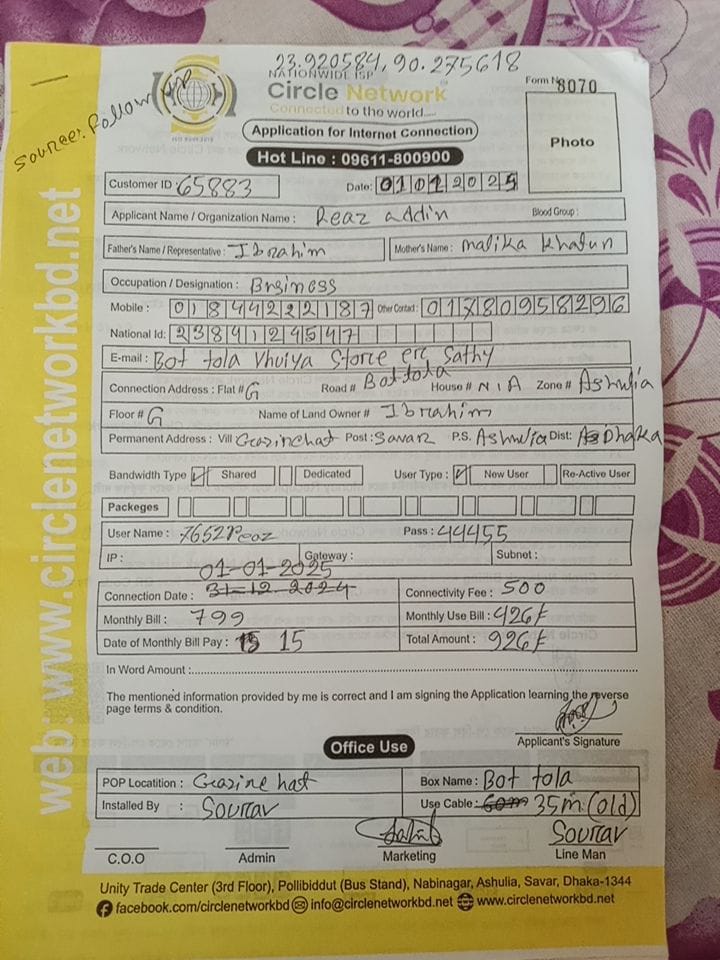 23.920584, 90.275618
Source: Follow up
NATIONWIDE ISP
Circle Network
Connected to the world....
Form No 8070
Application for Internet Connection
Hot Line : 09611-800900
Photo
Customer ID 65883 Date: 01 01 2025
Applicant Name / Organization Name : Reaz addin Blood Group :
Father's Name / Representative : Ibrahim Mother's Name : malika khatun
Occupation / Designation : Bnsiness
Mobile : 01844222187 Other Contact : 01780958296
National Id: 2384124547
E-mail : Bot tola Vhuiya Storce erc Sathy
Connection Address : Flat # G Road # Bottola House # N/A Zone # Ashulia
Floor # G Name of Land Owner # Ibrahim
Permanent Address : Vill Grazinehat Post : Savar P.S. Ashulia Dist: Dhaka
Bandwidth Type Shared Dedicated User Type : New User Re-Active User
Packeges
User Name : 7652Reaz Pass : 44455
IP : Gateway : Subnet :
01-01-2025
Connection Date : 31-12-2024 Connectivity Fee : 500
Monthly Bill : 799 Monthly Use Bill : 426/-
Date of Monthly Bill Pay : 15 15 Total Amount : 926/-
In Word Amount :
The mentioned information provided by me is correct and I am signing the Application learning the reverse
page terms & condition.
Applicant's Signature
Office Use
POP Locatition : Grazine hat Box Name : Bot tola
Installed By : Sourav Use Cable : 60m 35m (old)
Sourav
C.O.O Admin Marketing Line Man
Unity Trade Center (3rd Floor), Pollibiddut (Bus Stand), Nabinagar, Ashulia, Savar, Dhaka-1344
facebook.com/circlenetworkbd info@circlenetworkbd.net www.circlenetworkbd.net
web: www.circlenetworkbd.net